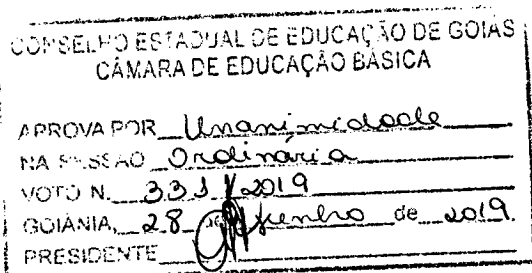 CONSELHO ESTADUAL DE EDUCAÇÃO DE GOIÁS
CÂMARA DE EDUCAÇÃO BÁSICA
APROVA POR Unanimidade
NA SESSÃO Ordinária
VOTO N. 331/2019
GOIÂNIA, 28 de junho de 2019.
PRESIDENTE